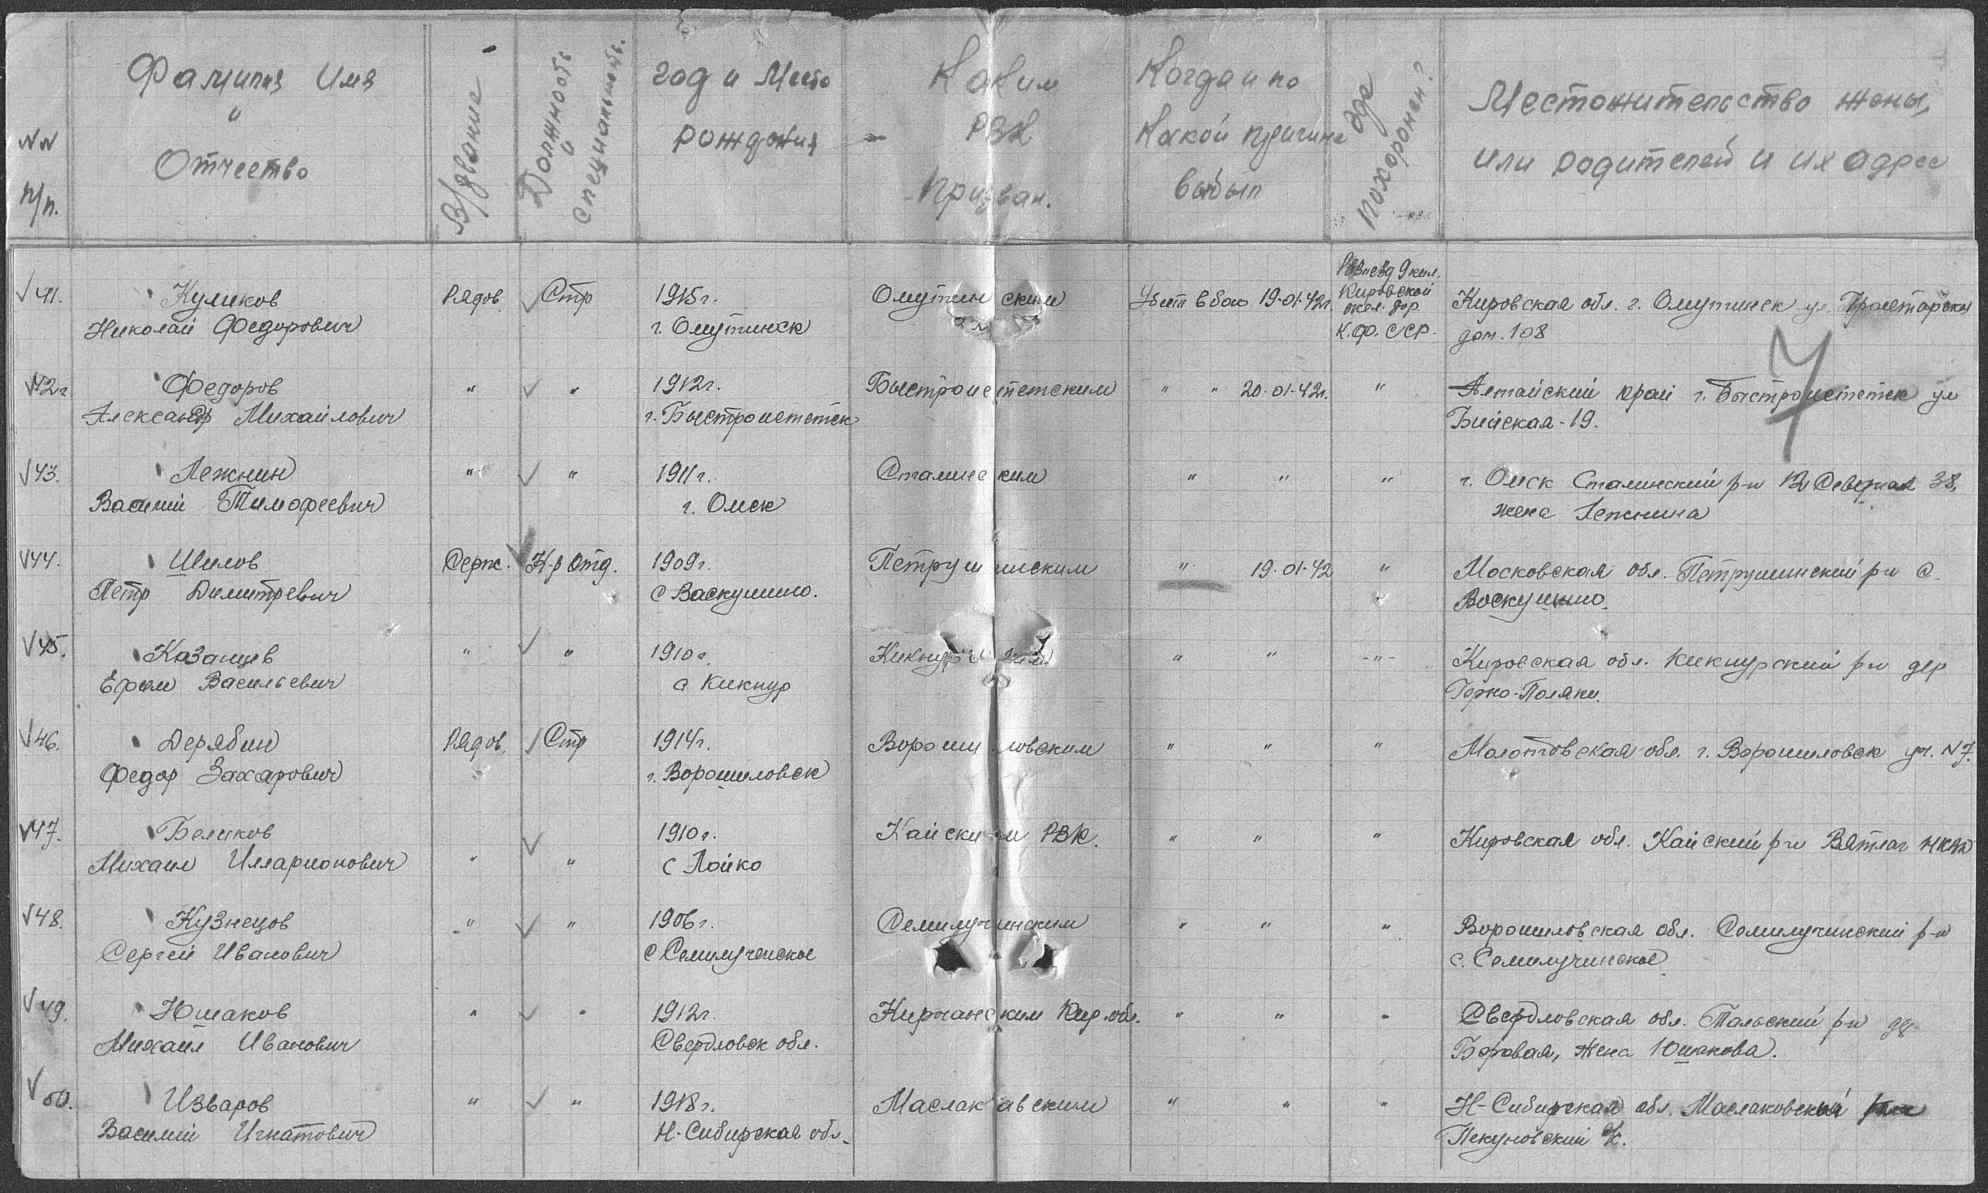 NN п/п.
Фамилия Имя и Отчество
В/звание
Должность и специальность.
год и Место рождения
Каким РВК Призван.
Когда и по какой причине выбыл
Где похоронен?
Местожительство жены, или родителей и их адрес
41. Куликов Рядов. Стр 1915г. Омутнинским Убит в бою 19-01-42г. Разъезд 9 кил. Кировской Кировская обл. г. Омутнинск ул
Николай Федорович г. Омутнинск К.Ф.ССР. дом. 108
7
42г Федоров " " 1912г. Быстроистетским " " 20-01-42г. " Алтайский край г. Быстроистетск ул
Александр Михайлович г. Быстроистетск Бийская-19.
43. Лежнин " " 1911г. Сталинским " " " г. Омск Сталинский р-н Северная 38,
Василий Тимофеевич г. Омск жена Лежнина
44. Шилов Серж. К-р Отд. 1909г. Петрушинским " 19-01-42 " Московская обл. Петрушинский р-н с.
Петр Димитревич с Васкушино. Воскушино.
45. Казанцев " " 1910г. " " -"- Кировская обл. Кикнурский р-н дер
Ефим Васильевич с Кикнур
46. Дерябин Рядов. Стр 1914г. Ворошиловским " " " Молотовская обл. г. Ворошиловск уч. N7.
Федор Захарович г. Ворошиловск
47. Беликов 1910г. Кайским РВК. " " " Кировская обл. Кайский р-н Вятлаг НКВД
Михаил Илларионович " " с Лойко
48. Кузнецов " " 1906г. Семилучинским " " " Ворошиловская обл. Семилучинский р-н
Сергей Иванович с Семилученское с. Семилучинское
49. Юшаков " " 1912г. Киржанским Кир. обл. " " " Свердловская обл. р-н
Михаил Иванович Свердловск обл. Боровая, жена Юшакова.
50. Изваров " " 1918г. Маслакавским " " " Н-Сибирская обл. Маслаковский
Василий Игнатович Н-Сибирская обл. Пекуновский с/с.